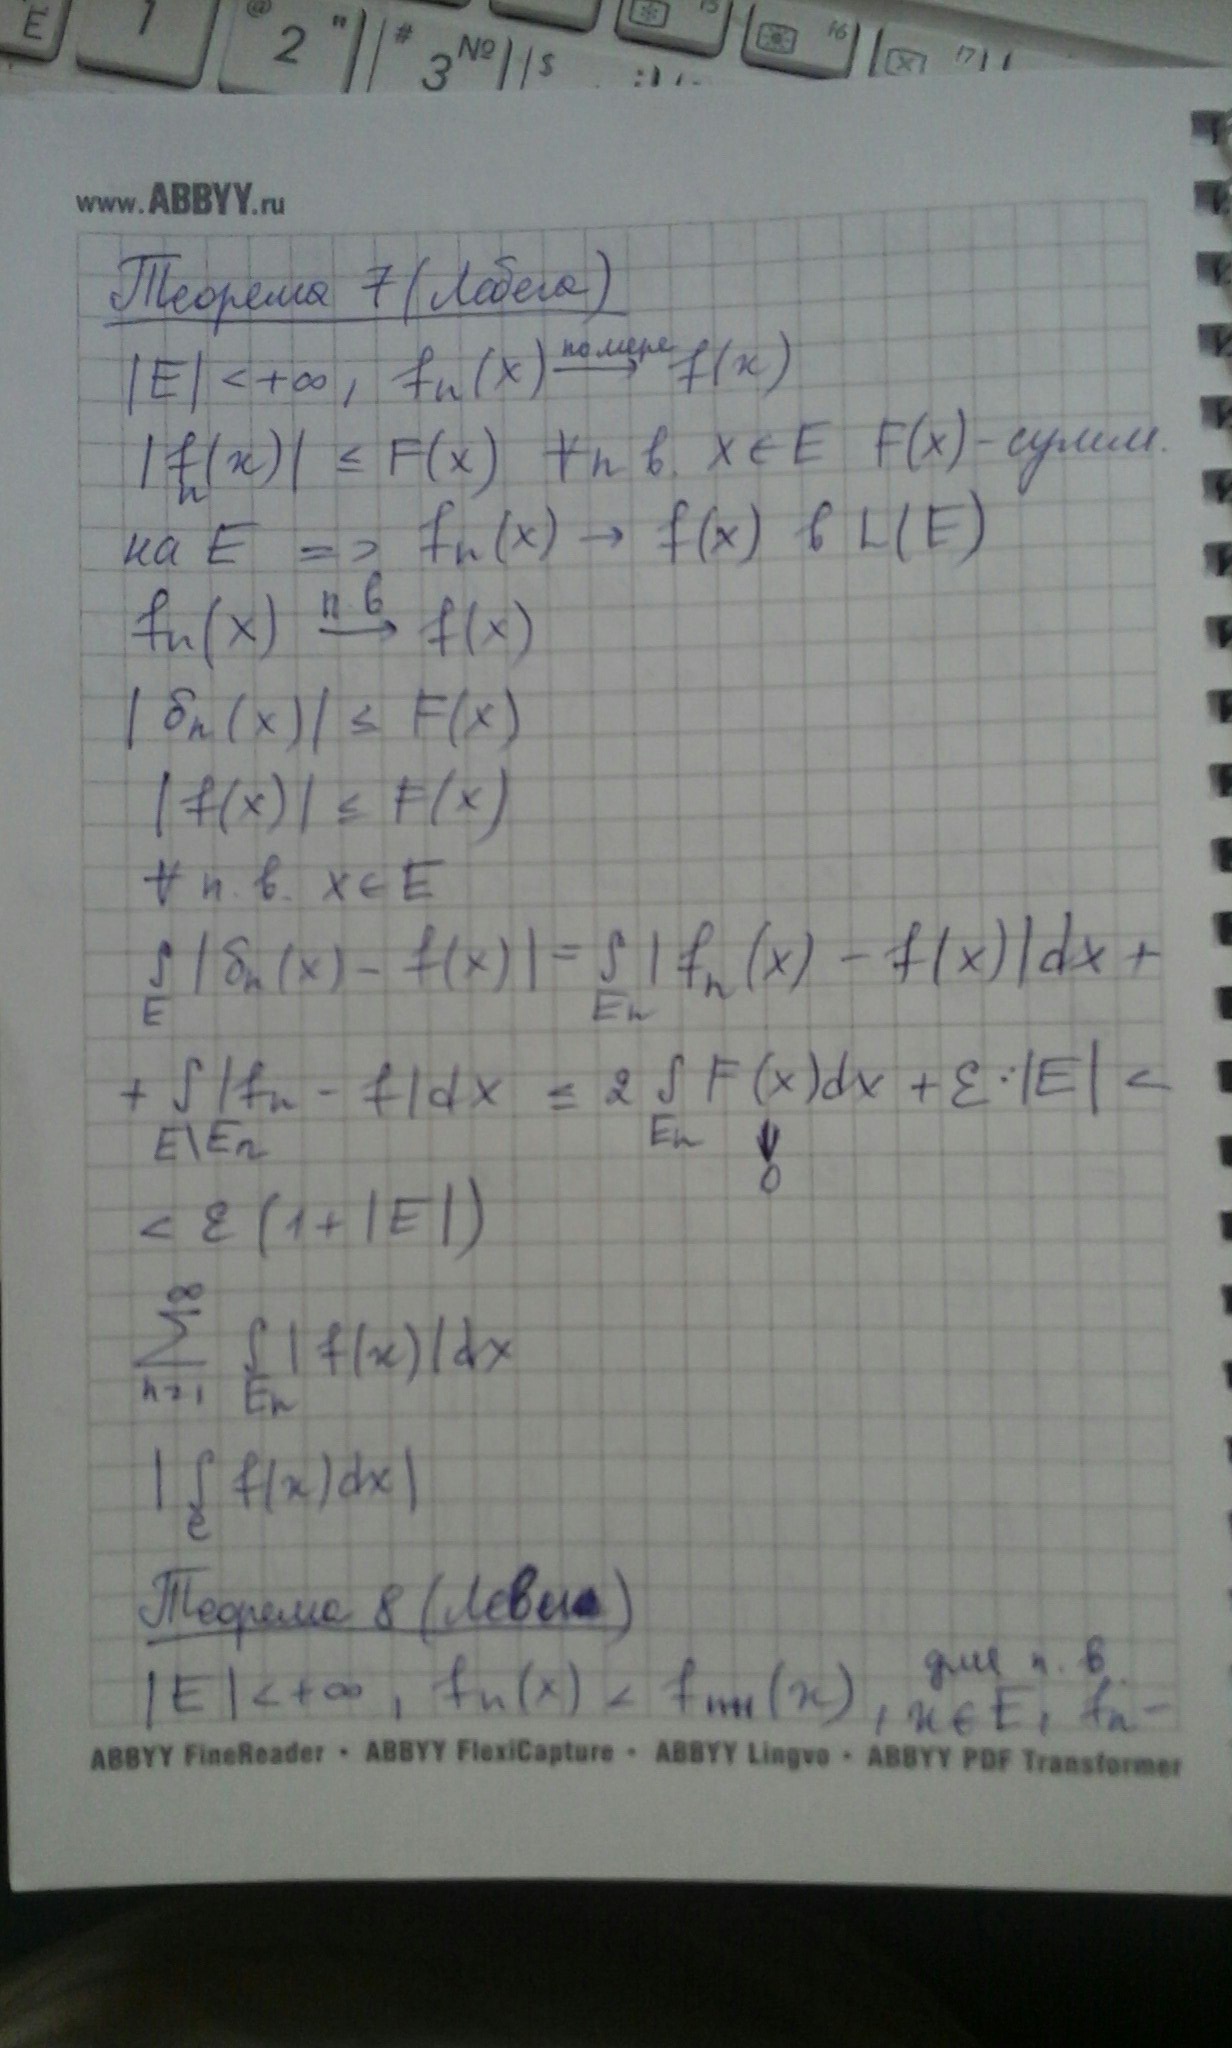 E 1 @ 2 " # 3 № $ 15 16 17
www.ABBYY.ru
Теорема 7 (Лебега)
|E| < +∞, fₙ(x) —по мере→ f(x)
|fₙ(x)| ≤ F(x) ∀ п в. x ∈ E F(x) - сумм.
на E => fₙ(x) → f(x) в L(E)
fₙ(x) —п в→ f(x)
|δₙ(x)| ≤ F(x)
|f(x)| ≤ F(x)
∀ п. в. x ∈ E
∫_E |δₙ(x) - f(x)| = ∫_Eₙ |fₙ(x) - f(x)| dx +
+ ∫_E\Eₙ |fₙ - f| dx ≤ 2 ∫_Eₙ F(x) dx + ε·|E| <
↓
0
< ε (1 + |E|)
∑_{n=1}^∞ ∫_Eₙ |f(x)| dx
|∫_e f(x) dx|
Теорема 8 (Леви)
для п. в.
|E| < +∞, fₙ(x) < fₙ₊₁(x), x ∈ E, fₙ -
ABBYY FineReader • ABBYY FlexiCapture • ABBYY Lingvo • ABBYY PDF Transformer